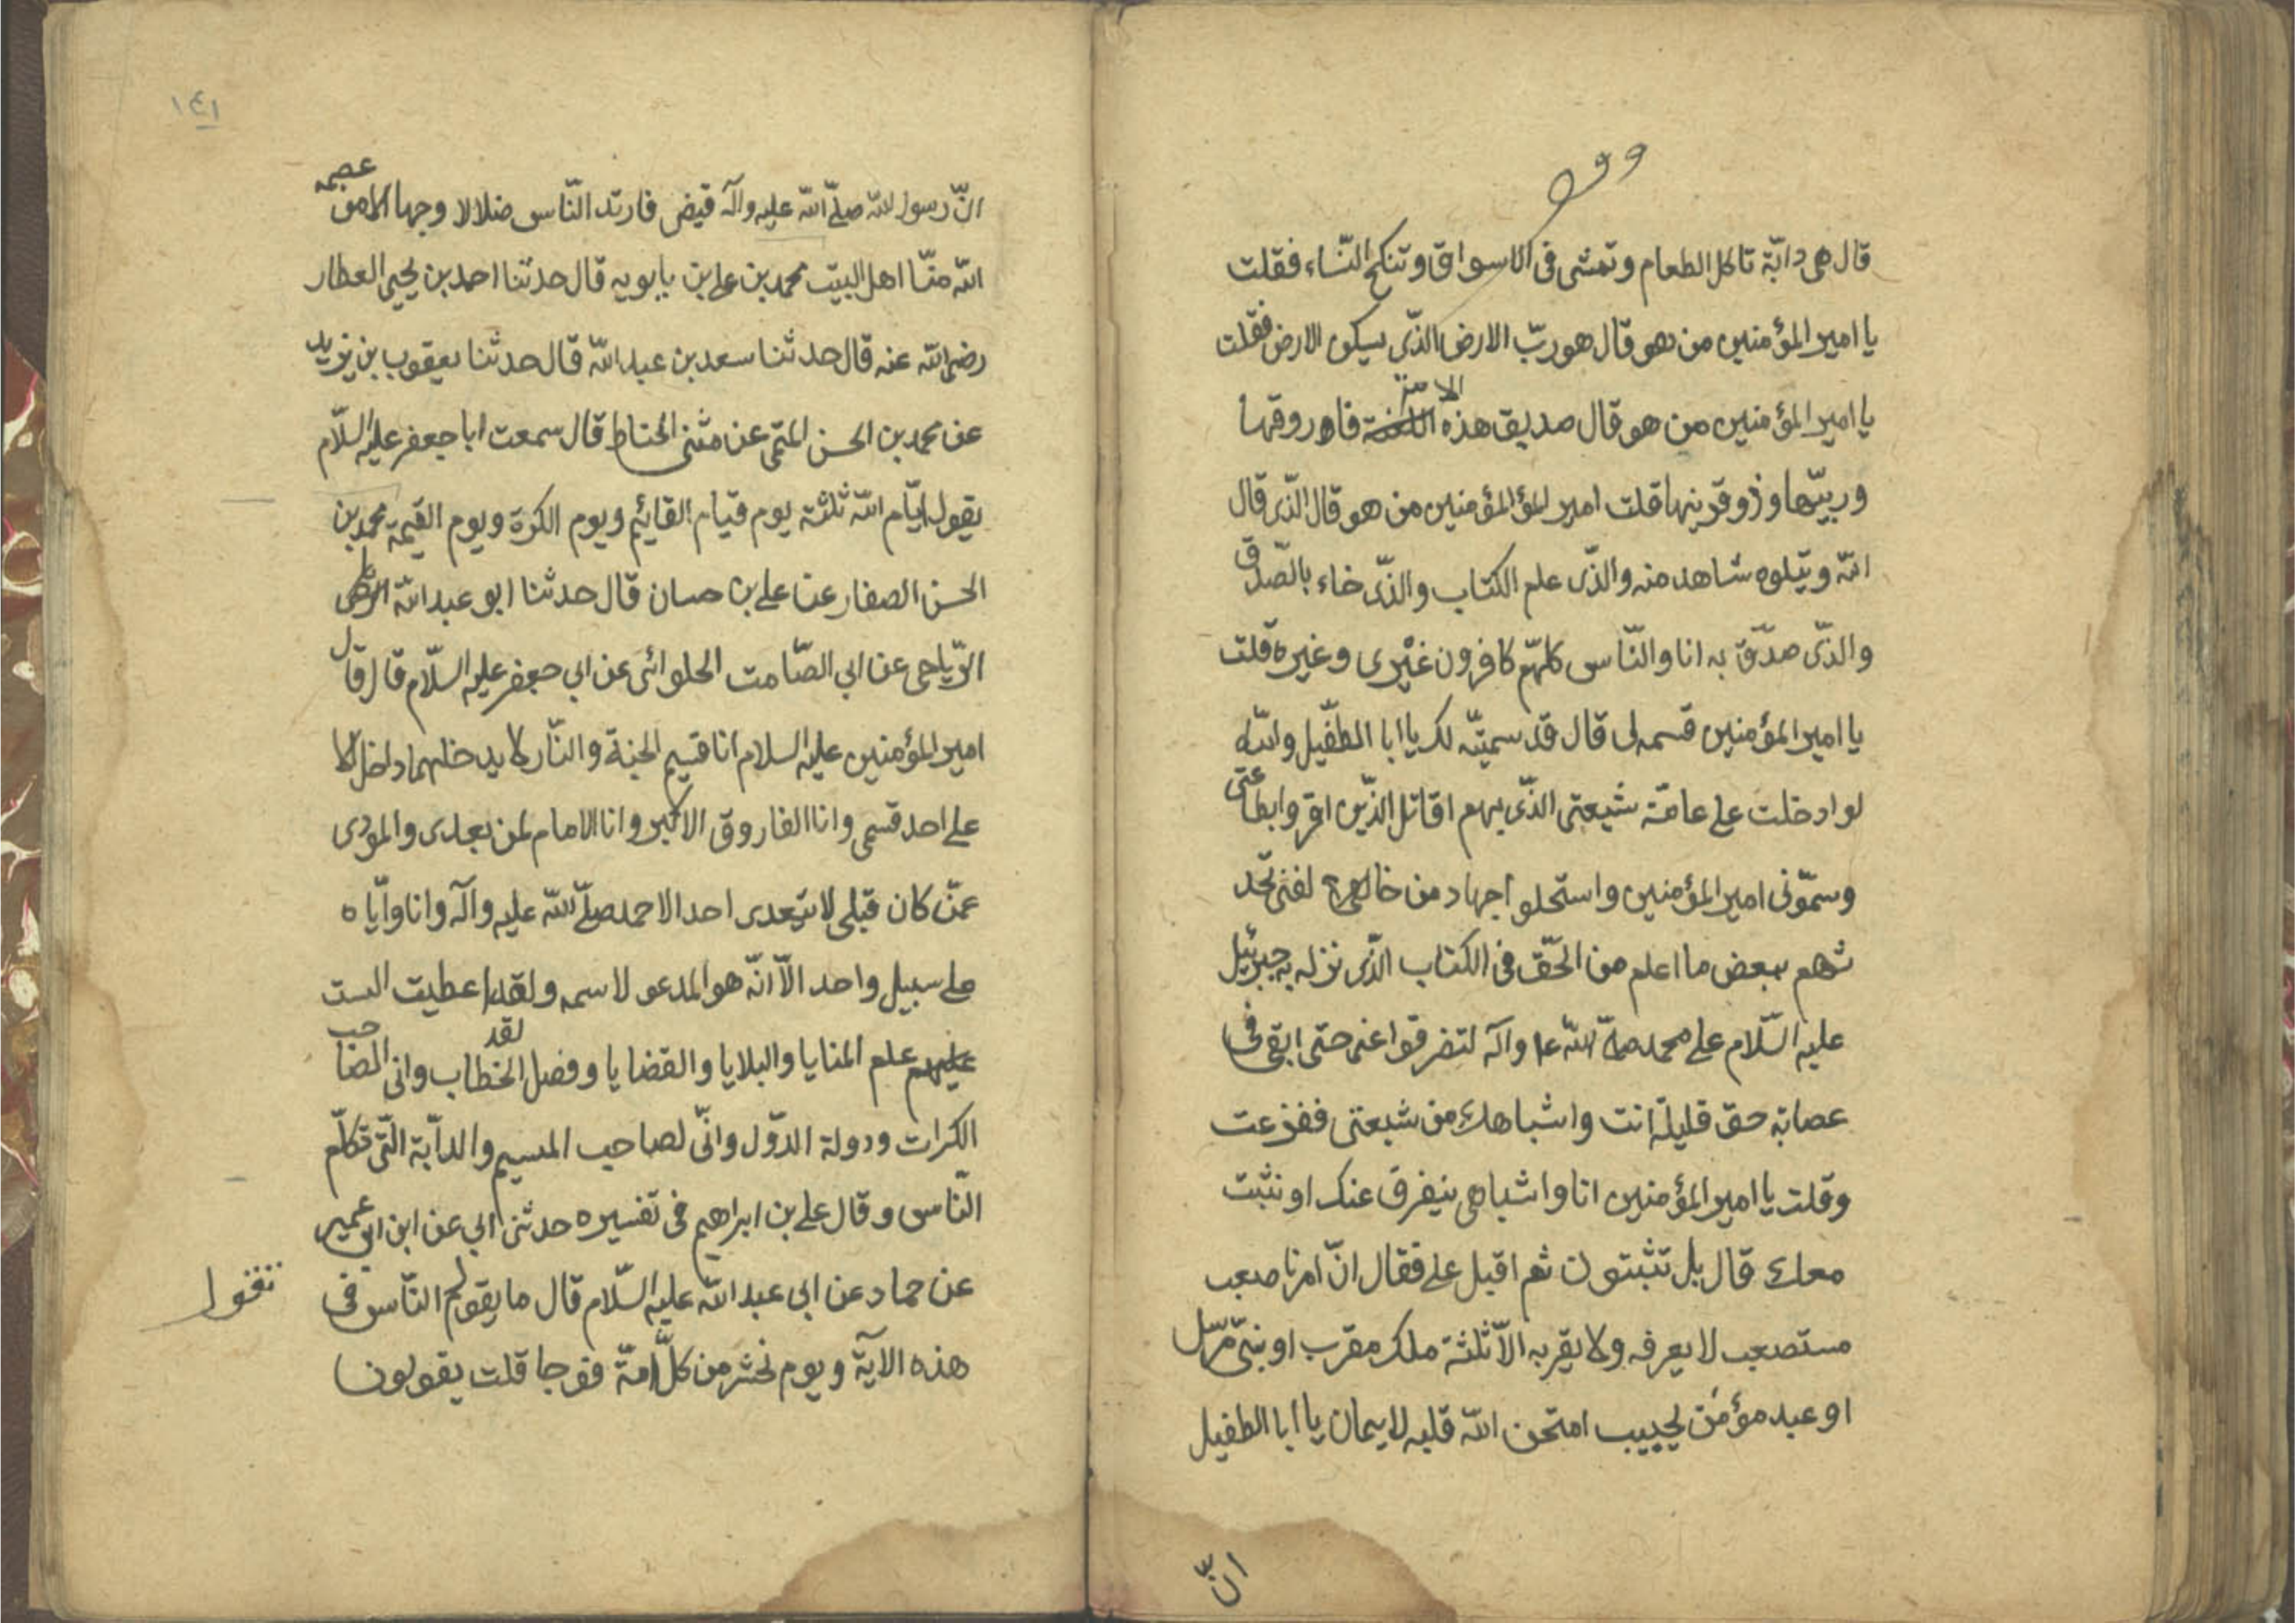 وقف
قال هى دابّة تاكل الطعام وتمشى فى الاسواق وتنكح النّساء فقلت
يا امير المؤمنين من هو قال هو ربّ الارض الذّى يسكن الارض فقلت
يا امير المؤمنين من هو قال صديق هذه الامة فاروقها
وربيّها وذو قرينها قلت امير المؤ المؤمنين من هو قال الذّى قال
اللّه ويتلوه شاهد منه والذّى علم الكتاب والذّى جاء بالصّدق
والذّى صدّق به انا والنّاس كلهّم كافرون غيْرى وغيره قلت
يا امير المؤمنين قسمه لى قال قد سميّته لك يا ابا الطفّيل واللّه
لو ادخلت على عامّة شيعتى الذّى بهم اقاتل الذّين اقروا بطاعتى
وسمّونى امير المؤمنين واستحلو اجهاد من خالفنى تحد
ثهم ببعض ما اعلم من الحقّ فى الكتاب الذّى نزل به جبرئيل
عليه السّلام على محمد صلّى اللّه ع‍ا وآله لتفرقوا عنى حتى ابقى فى
عصابة حق قليلة انت واشباهك من شيعتى ففزعت
وقلت يا امير المؤمنين انا واشباهى يتفرق عنك او نثبت
معك قال بل تثبتون ثم اقبل على فقال انّ امرنا صعب
مستصعب لا يعرفه ولا يقربه الاّ ثلثة ملك مقرب او نبىّ مرّسل
او عبد مؤمن نجيب امتحن اللّه قلبه لايمان يا ابا الطفيل
انّ
١٤١
انّ رسول اللّه صلّى اللّه عليه وآله قبض فارتد النّاس ضلالا وجها الا من عصمه
اللّه منّا اهل البيت محمد بن على بن بابويه قال حدثنا احمد بن يحيى العطار
رضى اللّه عنه قال حدثنا سعد بن عبد اللّه قال حدثنا يعقوب بن يزيد
عن محمد بن الحسن المتمى عن مثنى الحناط قال سمعت ابا جعفر عليه السّلام
يقول ايّام اللّه ثلثة يوم قيام القائم ويوم الكرة ويوم القيمة محمد بن
الحسن الصفار عن على بن حسان قال حدثنا ابو عبد اللّه
الرّياحى عن ابى الصّامت الحلوائى عن ابى جعفر عليه السّلام قال قال
امير المؤمنين عليه السلام انا قسيم الجنة والنّار لا يدخلهما داخل الا
على احد قسمى وانا الفاروق الاكبر وانا الامام لمن بعدى والمودى
عمّن كان قبلى لا يتعدى احد الا احمد صلّى اللّه عليه وآله وانا وايّاه
على سبيل واحد الاّ انّه هو المدعو لاسمه ولقد اعطيت الست
علم المنايا والبلايا والقضايا وفصل الخطاب لقد وانى الصاحب
الكرات ودولة الدّول وانّى لصاحب الميسم والدآبة الّتى تكلّم
النّاس وقال على بن ابراهيم فى تفسيره حدثنى ابى عن ابن ابى عمير
عن حماد عن ابى عبد اللّه عليه السّلام قال ما يقول النّاس فى
هذه الآية ويوم نحشر من كلّ امّة فوجا قلت يقولون